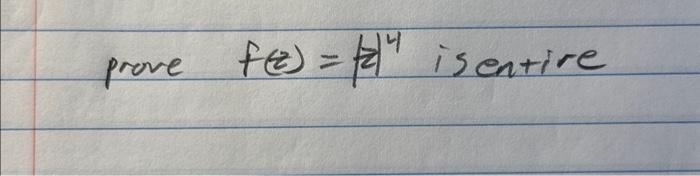 prove f(z) = |z|⁴ is entire